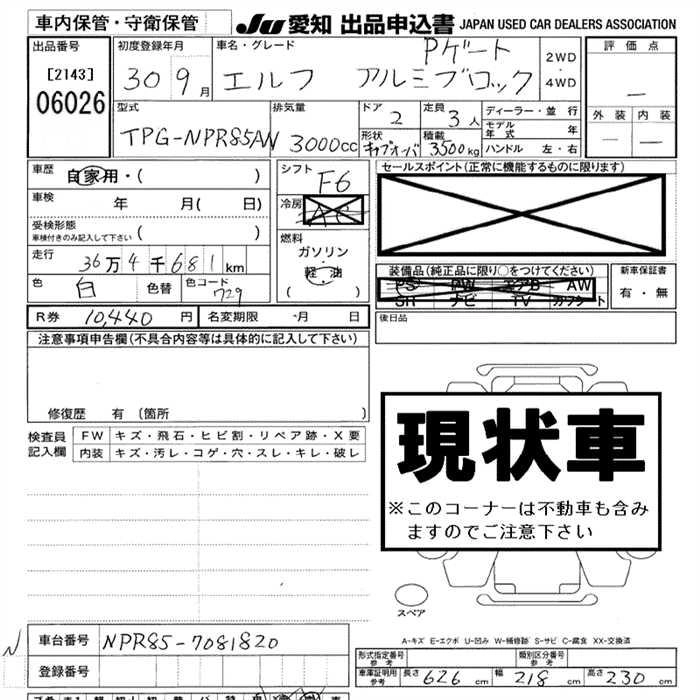 車内保管・守衛保管
JU 愛知 出品申込書 JAPAN USED CAR DEALERS ASSOCIATION
出品番号
[2143]
06026
初度登録年月
30 9月
車名・グレード
Pゲート
エルフ アルミブロック
2WD
4WD
評価点
―
外装 内装
― ―
型式
TPG-NPR85AN
排気量
3000cc
ドア
2
定員
3人
形状
キャブオーバ
積載
3500kg
ディーラー・並行
モデル年式 年
ハンドル 左・右
車歴 自家用・( )
車検 年 月( 日)
受検形態
車検付きのみ記入して下さい ( )
走行 36万4千681km
色 白 色替 色コード 729
シフト F6
冷房 AC
燃料
ガソリン
・
軽油
( )
セールスポイント(正常に機能するものに限ります)
装備品(純正品に限り○をつけてください)
PS PW エアB AW
SH ナビ TV カワシート
新車保証書
有・無
R券 10,440円 名変期限 ・月 日
後日品
注意事項申告欄(不具合内容等は具体的に記入して下さい)
修復歴 有(箇所 )
検査員記入欄
FW キズ・飛石・ヒビ割・リペア跡・X要
内装 キズ・汚レ・コゲ・穴・スレ・キレ・破レ
現状車
※このコーナーは不動車も含み
ますのでご注意下さい
スペア
A-キズ E-エクボ U-凹み W-補修跡 S-サビ C-腐食 XX-交換済
N
車台番号 NPR85-7081820
登録番号
形式指定番号
参考
類別区分番号
参考
車庫証明用
参考
長さ 626cm 幅 218cm 高さ 230cm